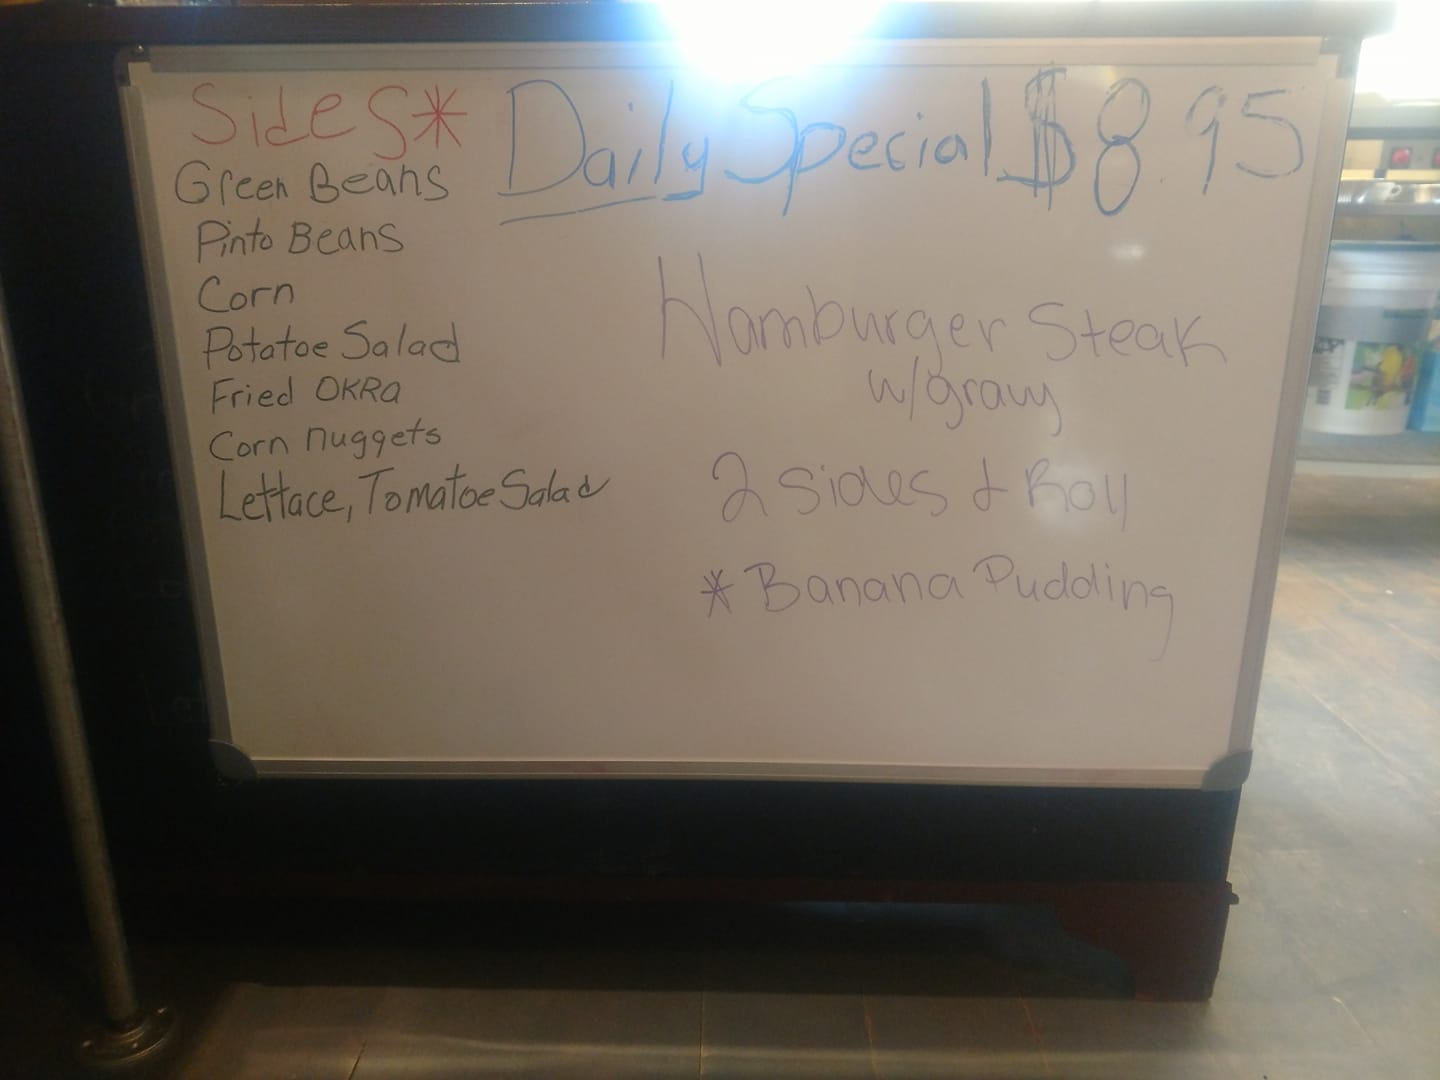 Sides*
Green Beans
Pinto Beans
Corn
Potatoe Salad
Fried OKRa
Corn nuggets
Lettace, Tomatoe Salad
Daily Special $8.95
Hamburger Steak
w/gravy
2 Sides & Roll
* Banana Pudding